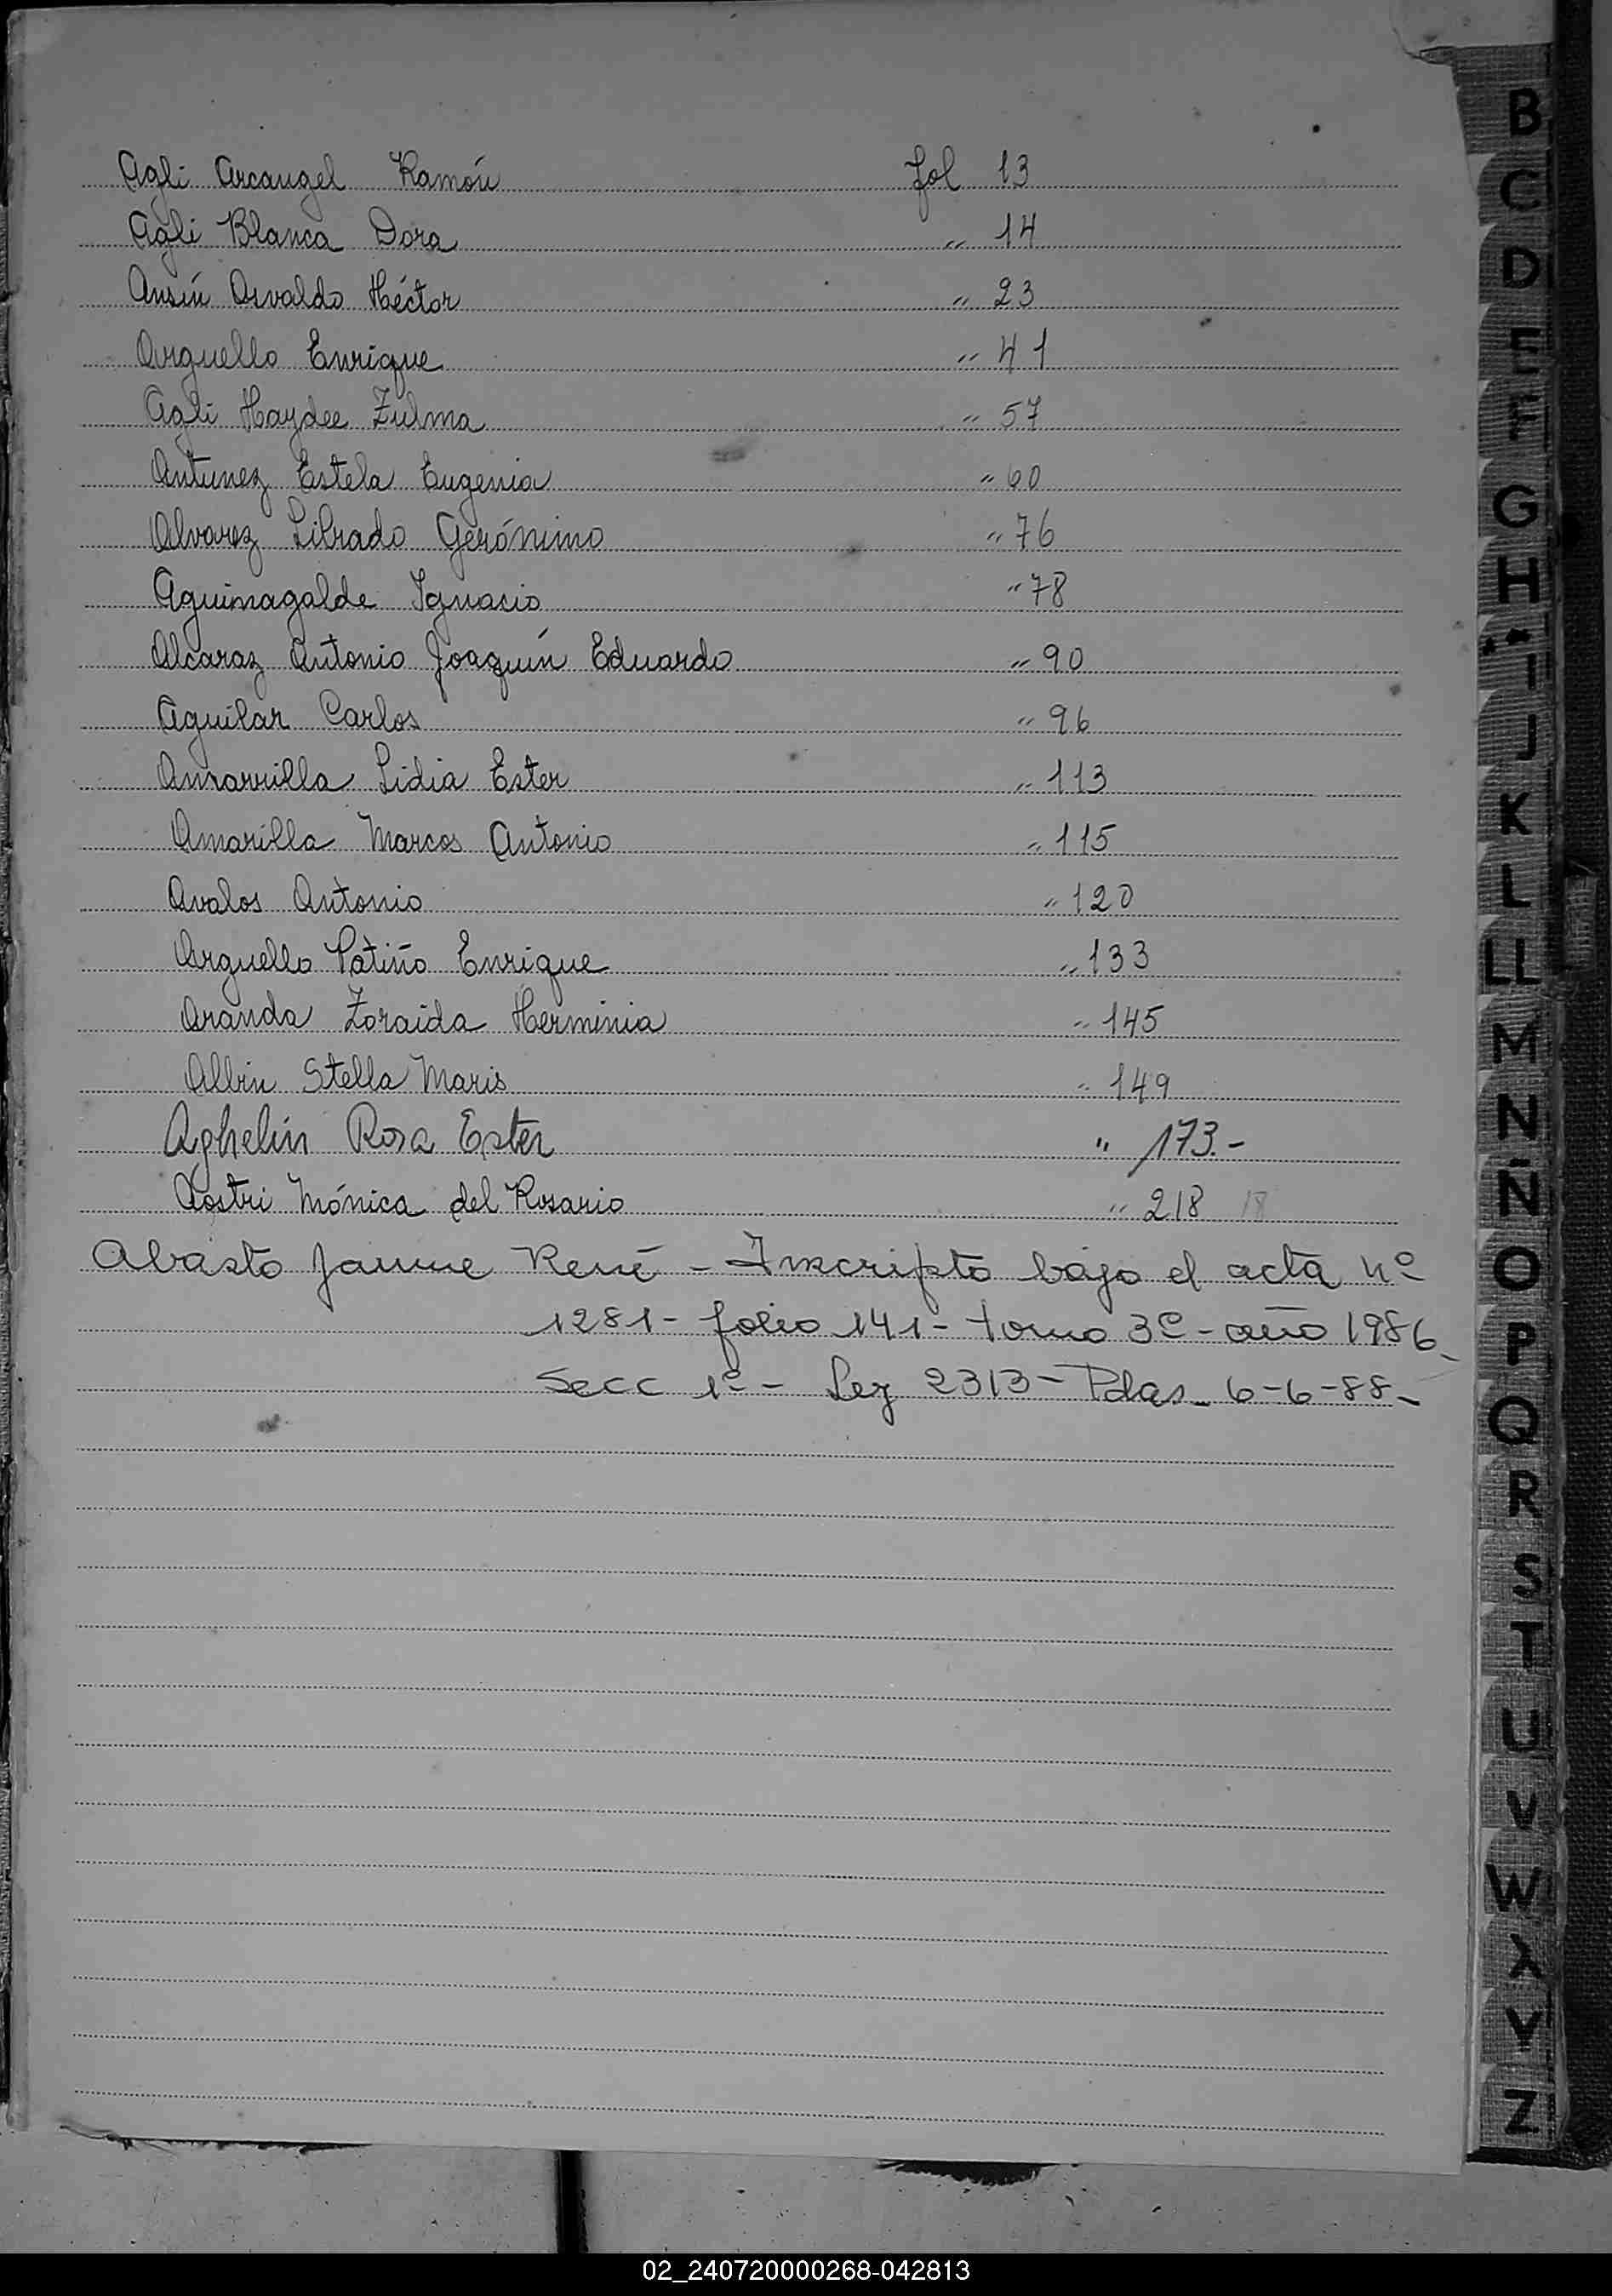 Agli Arcangel Ramón fol 13
Agli Blanca Dora " 14
Ansín Osvaldo Héctor " 23
Arguello Enrique " 41
Agli Haydee Zulma " 57
Antunez Estela Eugenia " 60
Alvarez Librado Gerónimo " 76
Aguinagalde Ignacio " 78
Alcaraz Antonio Joaquín Eduardo " 90
Aguilar Carlos " 96
Amarrilla Lidia Ester " 113
Amarilla Marcos Antonio " 115
Avalos Antonio " 120
Arguello Patiño Enrique " 133
Aranda Zoraida Herminia " 145
Albin Stella Maris " 149
Aghelin Rosa Ester " 173.-
Mónica del Rosario " 218 18
Abasto Jaime René - Inscripto bajo el acta nº
1281- folio 141- tomo 3º - año 1986-
Secc 1º - Ley 2313- Pdas- 6-6-88-
B
C
D
E
F
G
H
I
J
K
L
LL
M
N
Ñ
O
P
Q
R
S
T
U
V
W
X
Y
Z
02_240720000268-042813